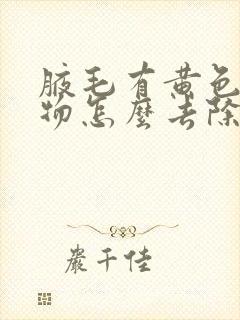 腋毛有黄色
物怎麼去除
嚴千佳